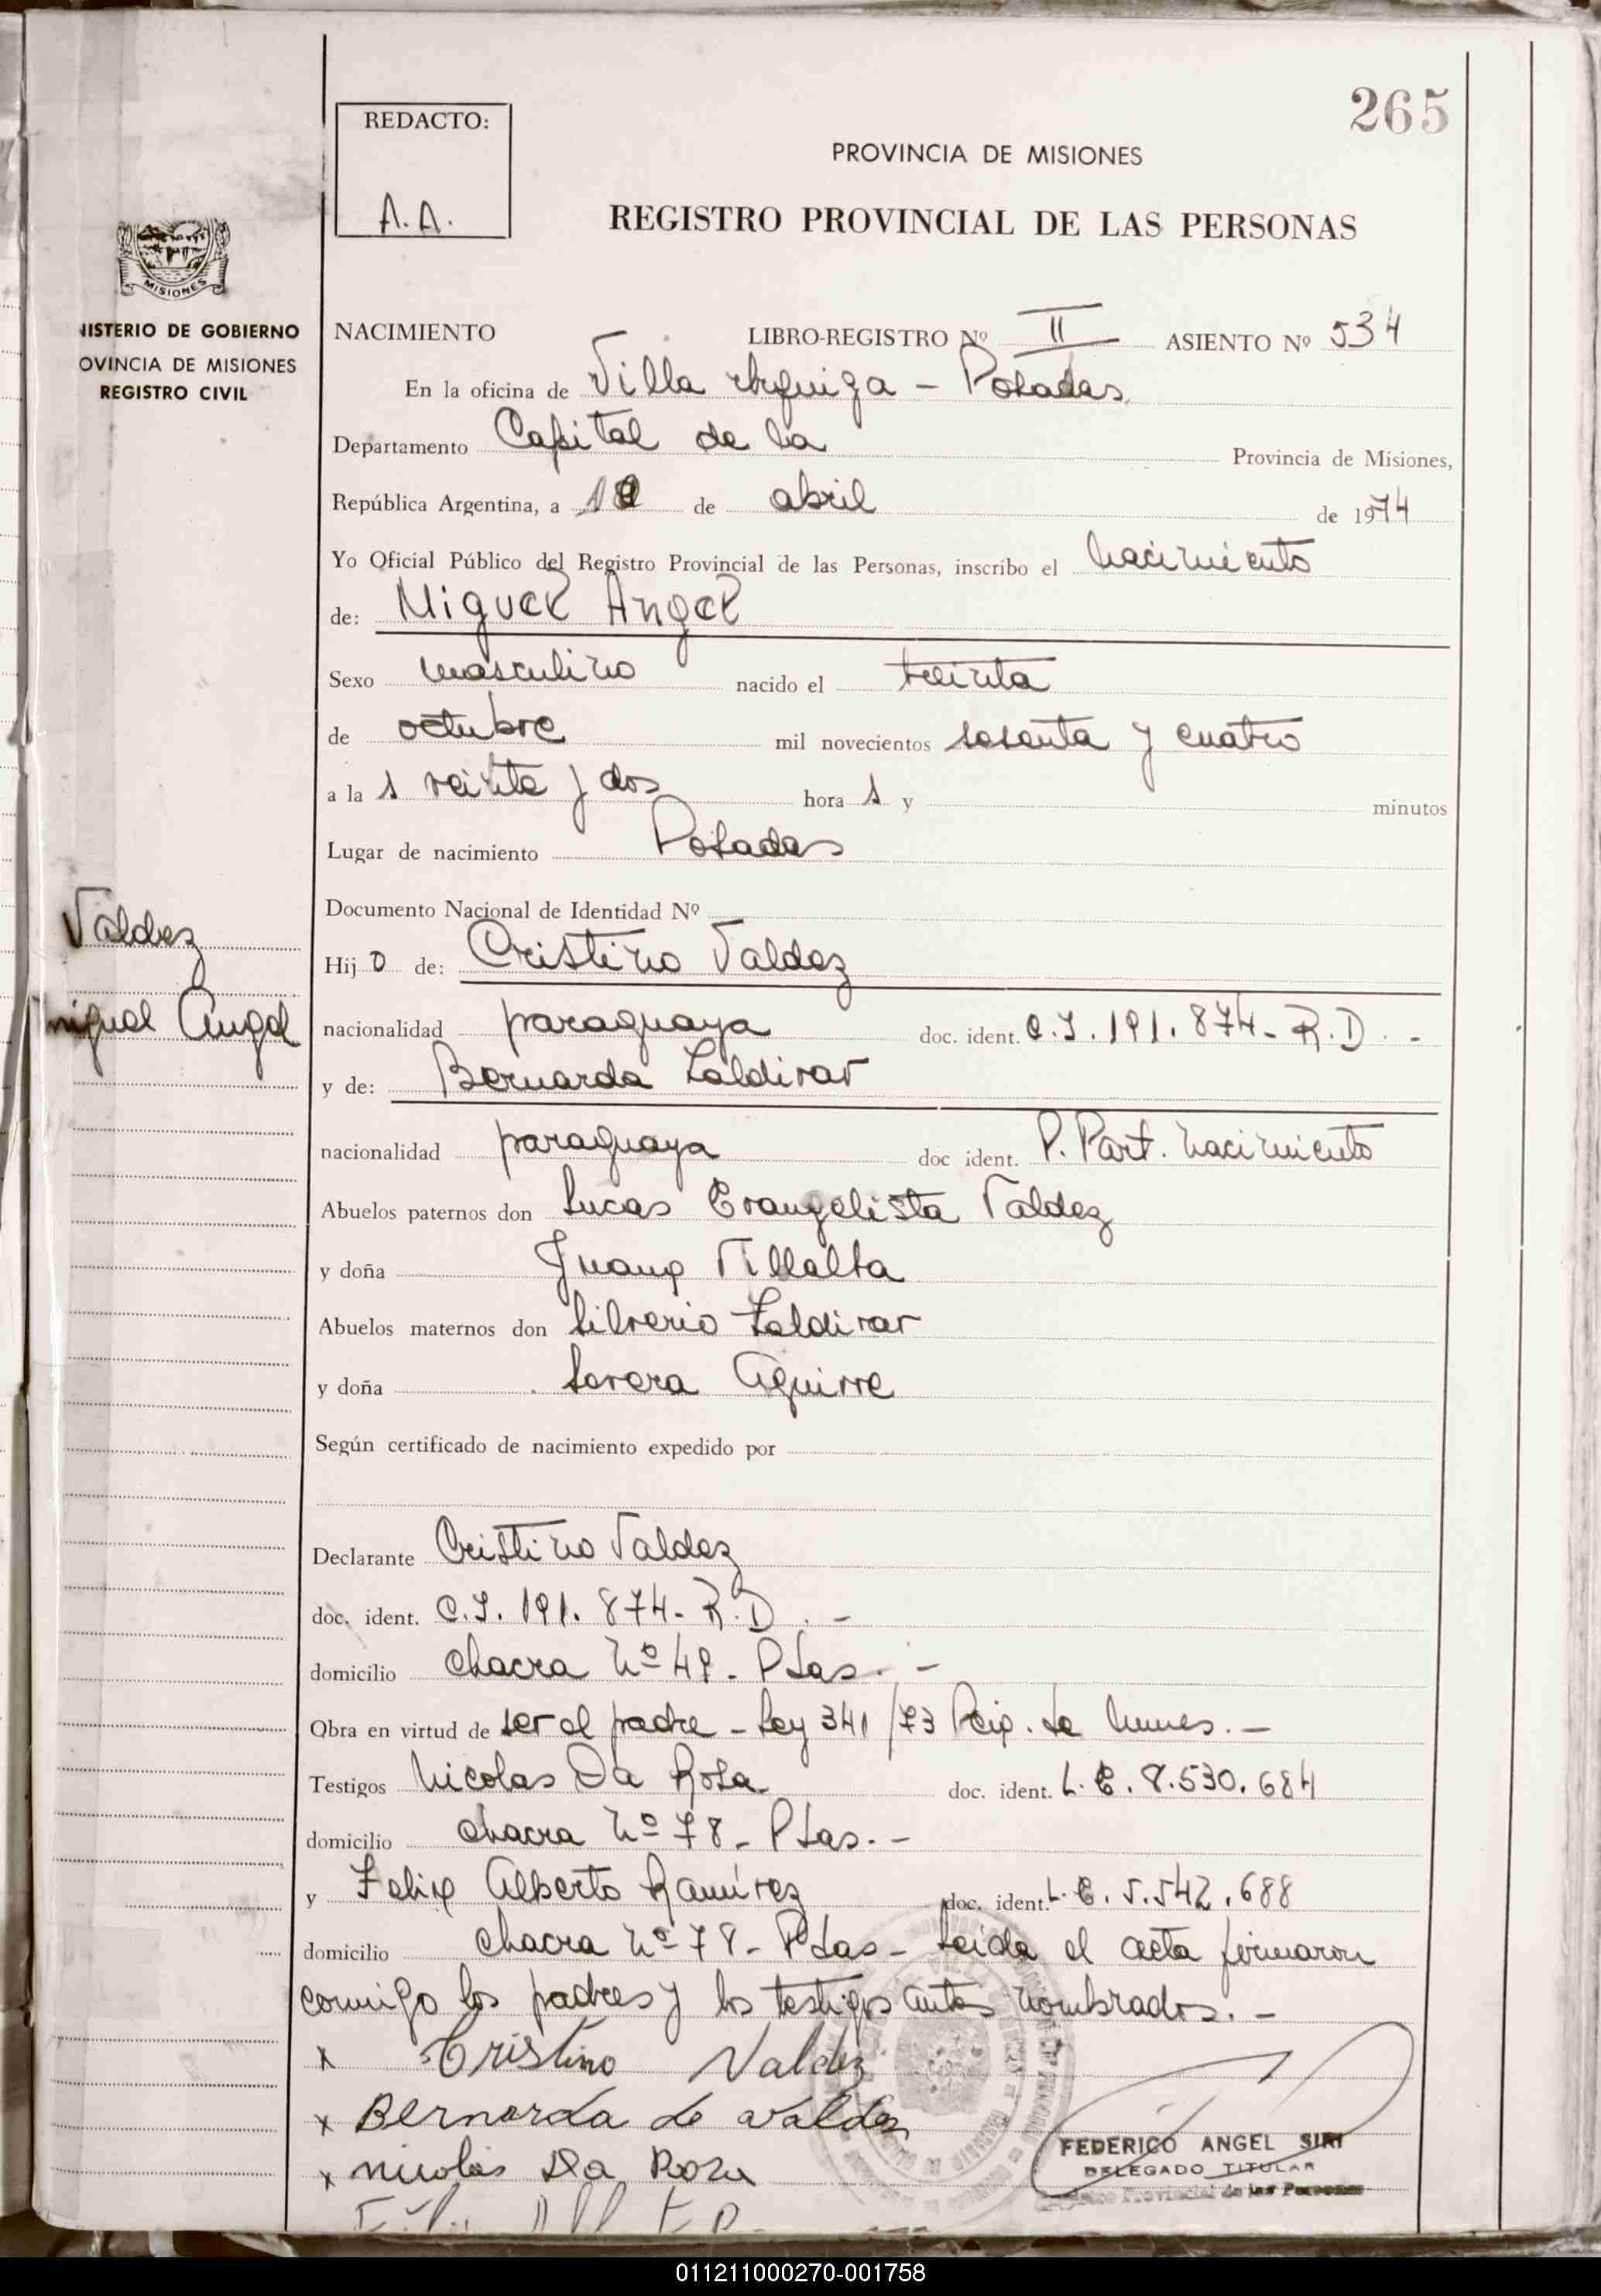 265
REDACTO:
A.A.
PROVINCIA DE MISIONES
REGISTRO PROVINCIAL DE LAS PERSONAS
MISIONES
NISTERIO DE GOBIERNO
OVINCIA DE MISIONES
REGISTRO CIVIL
NACIMIENTO LIBRO-REGISTRO Nº II ASIENTO Nº 534
En la oficina de Villa Urquiza - Posadas
Departamento Capital de la Provincia de Misiones,
República Argentina, a de abril de 1974
Yo Oficial Público del Registro Provincial de las Personas, inscribo el nacimiento
de: Miguel Angel
Sexo masculino nacido el treinta
de octubre mil novecientos sesenta y cuatro
a la s veinte y dos hora s y minutos
Lugar de nacimiento Posadas
Documento Nacional de Identidad Nº
Valdez
Miguel Angel
Hij o de: Cristino Valdez
nacionalidad paraguaya doc. ident. C.I. 191.874- R.D. -
y de: Bernarda Zaldivar
nacionalidad paraguaya doc ident. P. Part. nacimiento
Abuelos paternos don Lucas Evangelista Valdez
y doña Juana Villalba
Abuelos maternos don Silverio Zaldivar
y doña Severa Aguirre
Según certificado de nacimiento expedido por
Declarante Cristino Valdez
doc. ident. C.I. 191.874- R.D. -
domicilio chacra Nº 49- Pdas. -
Obra en virtud de ser el padre - Ley 341/73 -
Testigos Nicolas Da Rosa doc. ident. L.E. 7.530.684
domicilio chacra Nº 78- Pdas. -
y Felix Alberto Ramirez doc. ident. L.E. 5.542.688
domicilio chacra Nº 78- Pdas - Leida el acta firmaron
conmigo los padres y los testigos antes nombrados. -
x Cristino Valdez
x Bernarda de Valdez
x nicolas Da Rosa
FEDERICO ANGEL SIRI
DELEGADO TITULAR
Provincial de las Personas
011211000270-001758